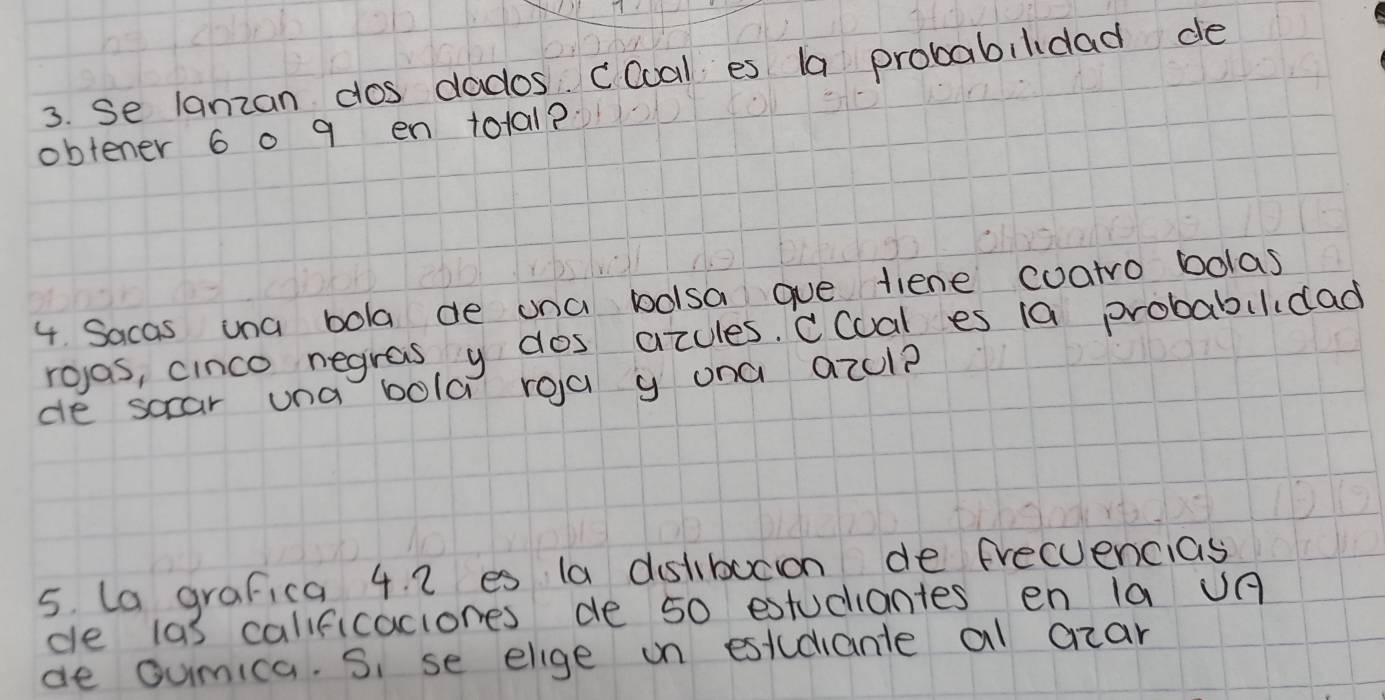 3. Se lanzan dos dados. ¿Cual es la probabilidad de
obtener 6 o 9 en total?
4. Sacas una bola de una bolsa que tiene cuatro bolas
rojas, cinco negras y dos azules. ¿Cual es la probabilidad
de sacar una bola roja y una azul?
5. La grafica 4.2 es la distibucion de frecuencias
de las calificaciones de 50 estudiantes en la UA
de Quimica. Si se elige un estudiante al azar